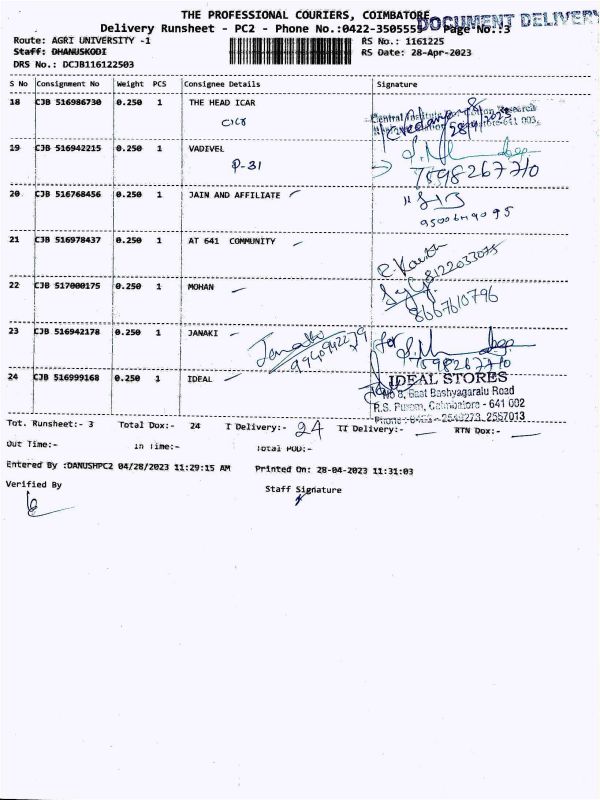 THE PROFESSIONAL COURIERS, COIMBATORE
DOCUMENT DELIVERY
Delivery Runsheet - PC2 - Phone No.:0422-3505555 Page No.:3
Route: AGRI UNIVERSITY -1 RS No.: 1161225
Staff: DHANUSKODI RS Date: 28-Apr-2023
DRS No.: DCJB116122503
S No Consignment No Weight PCS Consignee Details Signature
18 CJB 516986730 0.250 1 THE HEAD ICAR
CICR
19 CJB 516942215 0.250 1 VADIVEL
P-31
7598267710
20 CJB 516768456 0.250 1 JAIN AND AFFILIATE
21 CJB 516978437 0.250 1 AT 641 COMMUNITY
8122033075
22 CJB 517000175 0.250 1 MOHAN
8667610796
23 CJB 516942178 0.250 1 JANAKI for
7598267710
24 CJB 516999168 0.250 1 IDEAL
IDEAL STORES
No 8, East Bashyagaralu Road
R.S. Puram, Coimbatore - 641 002
Phone: 2557013
Tot. Runsheet:- 3 Total Dox:- 24 I Delivery:- 24 II Delivery:- — RTN Dox:- —
Out Time:- In Time:- Total POD:-
Entered By :DANUSHPC2 04/28/2023 11:29:15 AM Printed On: 28-04-2023 11:31:03
Verified By Staff Signature